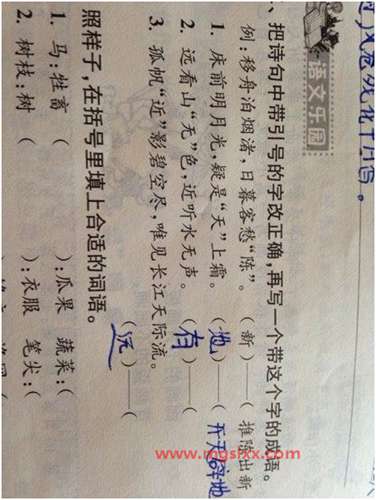 语文乐园
、把诗句中带引号的字改正确,再写一个带这个字的成语。
例:移舟泊烟渚,日暮客愁“陈”。 (新)——( 推陈出新
1. 床前明月光,疑是“天”上霜。 (地)——( 开天辟地
2. 远看山“无”色,近听水无声。 (有)——(
3. 孤帆“近”影碧空尽,唯见长江天际流。 (远)——(
照样子,在括号里填上合适的词语。
1. 马:牲畜 ( ):瓜果 蔬菜:(
2. 树枝:树 ( ):衣服 笔尖:(